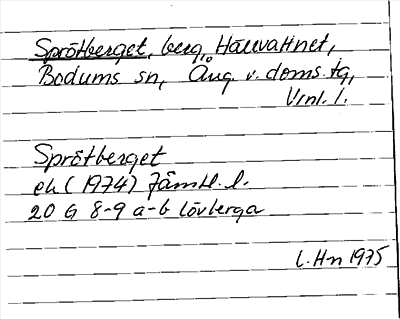 Sprötberget, berg, Håvvattnet,
Bodums sn, Ång. v. doms. tg,
Vrnl. l.
Sprötberget
ek (1974) Jämtl. l.
20 G 8-9 a-b Lövberga
L. Hn 1975